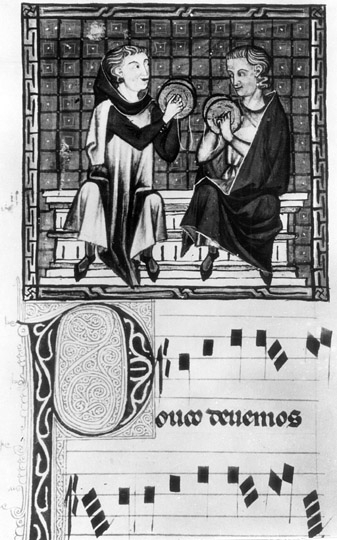 Pouco deuemos